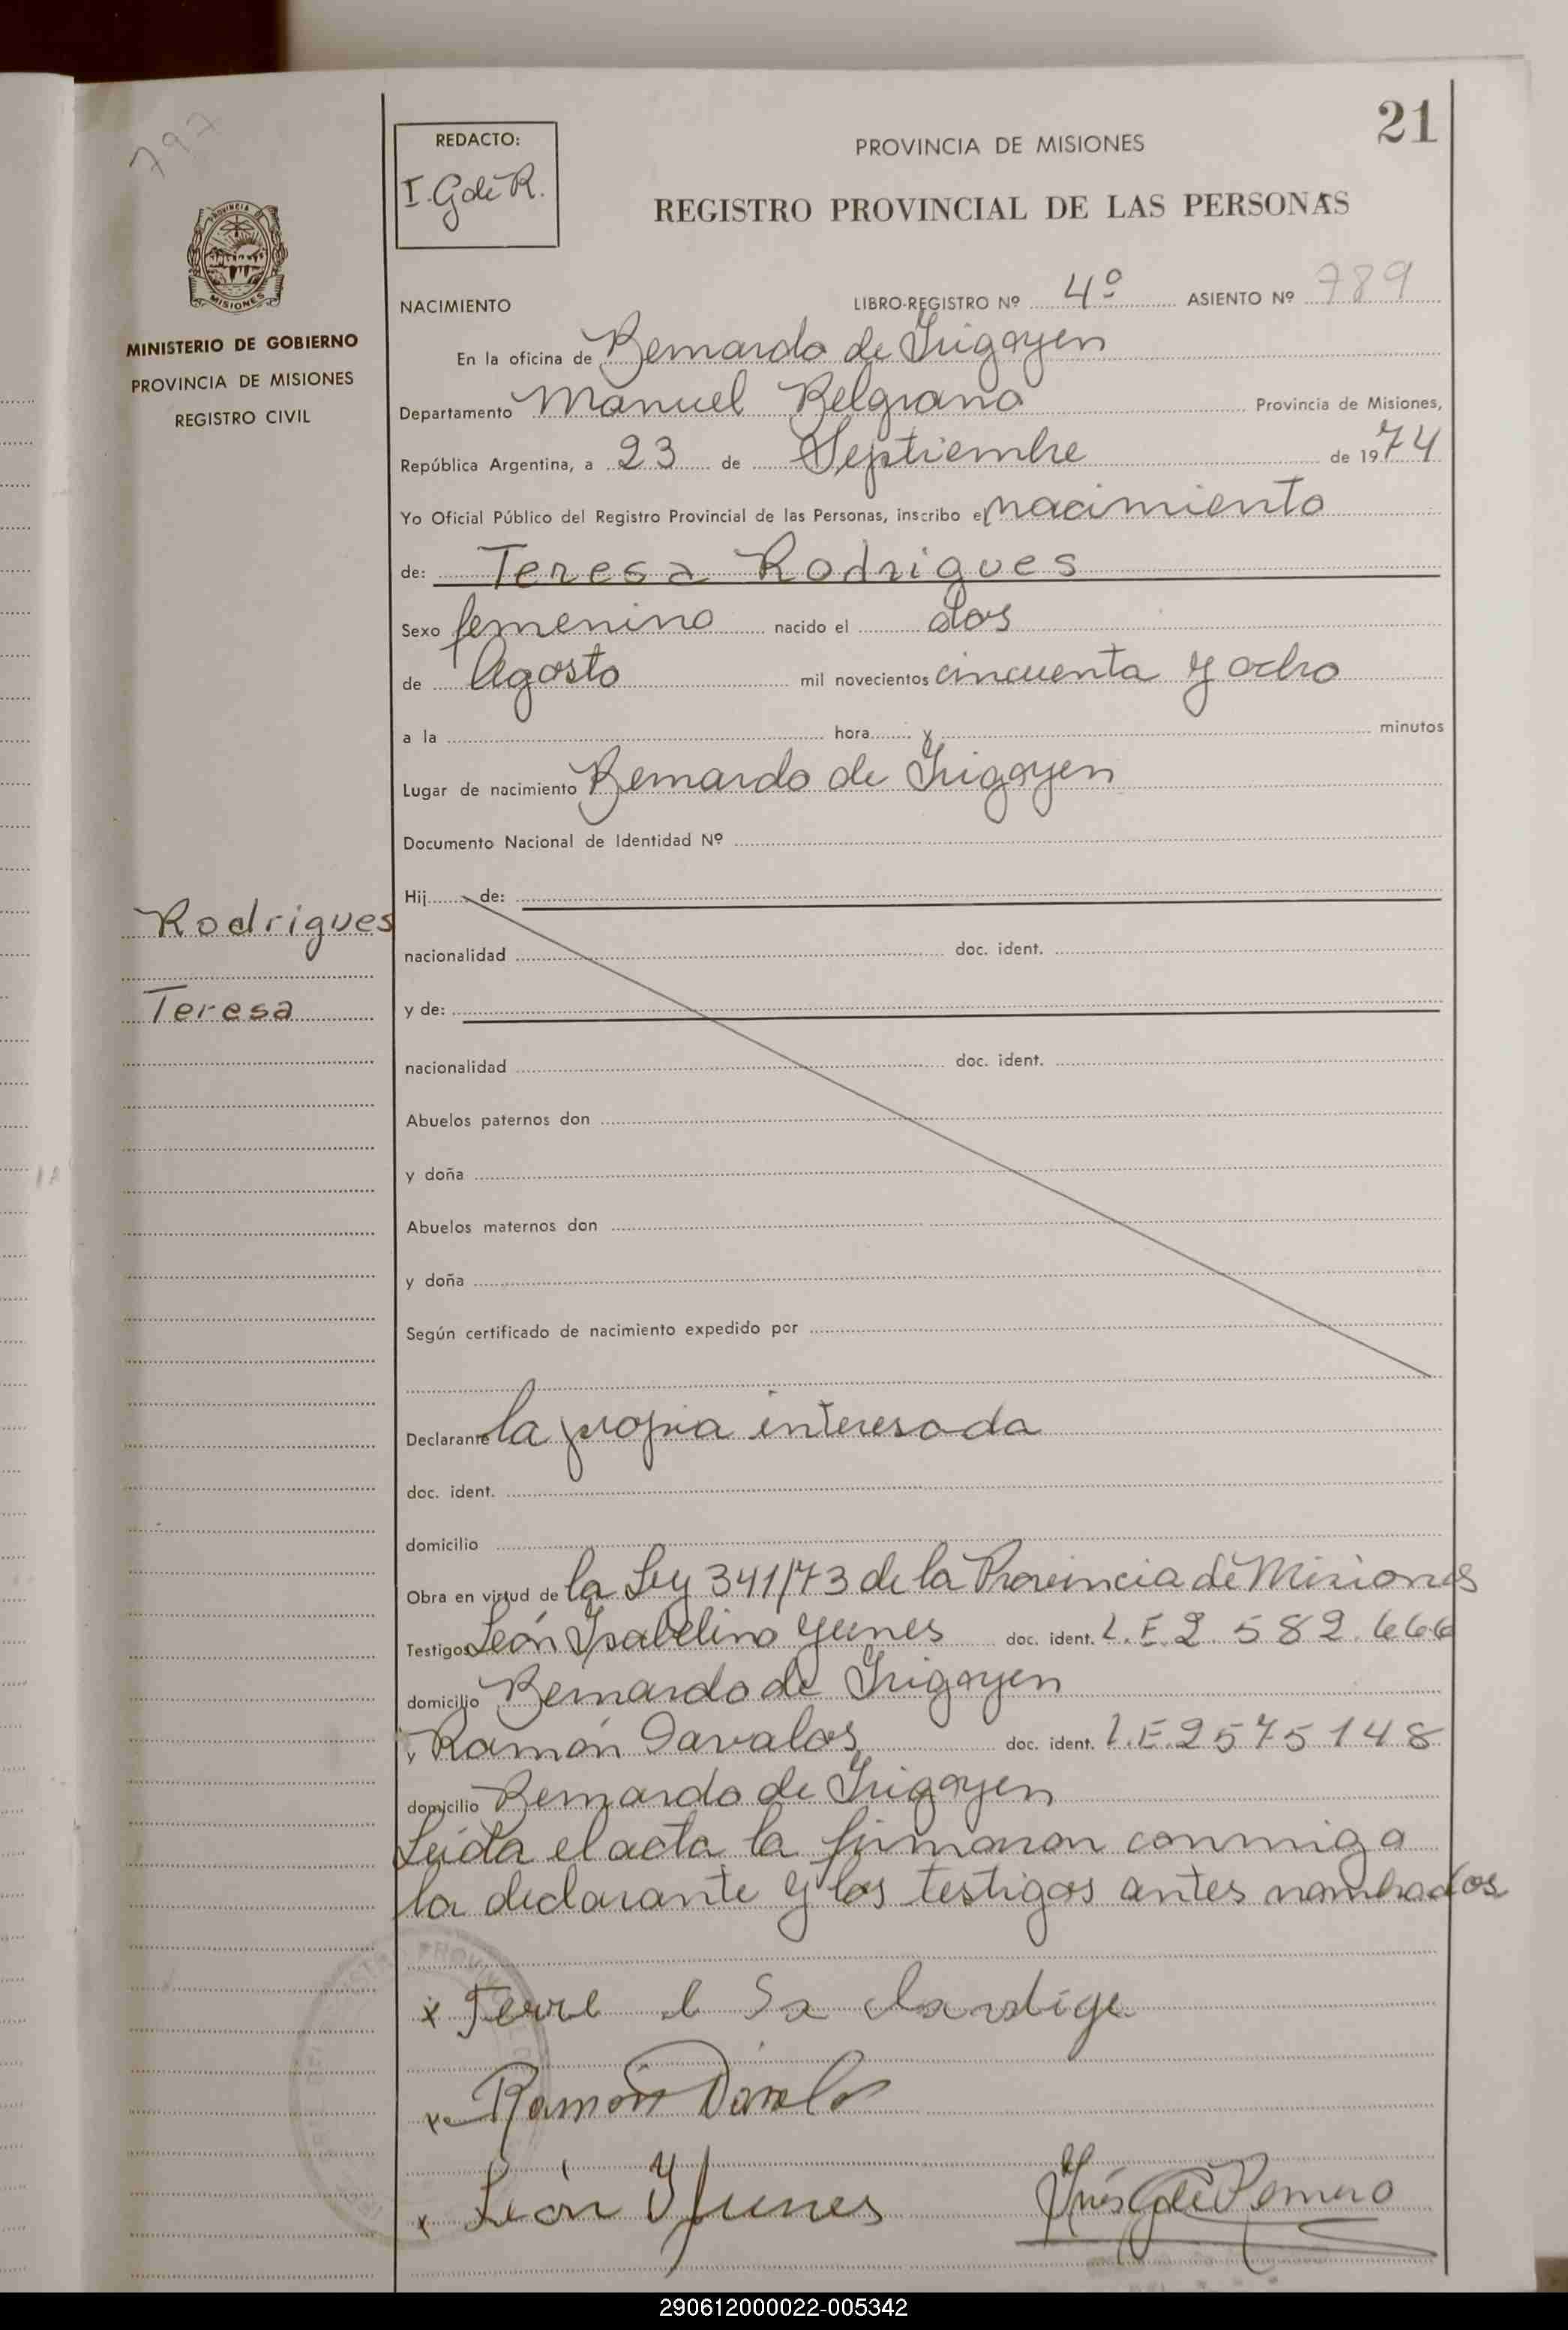 797
21
REDACTO:
I. G de R.
PROVINCIA DE MISIONES
REGISTRO PROVINCIAL DE LAS PERSONAS
MISIONES
MINISTERIO DE GOBIERNO
PROVINCIA DE MISIONES
REGISTRO CIVIL
NACIMIENTO LIBRO-REGISTRO Nº 4º ASIENTO Nº 789
En la oficina de Bernardo de Irigoyen
Departamento Manuel Belgrano Provincia de Misiones,
República Argentina, a 23 de Septiembre de 1974
Yo Oficial Público del Registro Provincial de las Personas, inscribo el nacimiento
de: Teresa Rodrigues
Sexo femenino nacido el dos
de Agosto mil novecientos cincuenta y ocho
a la hora y minutos
Lugar de nacimiento Bernardo de Irigoyen
Documento Nacional de Identidad Nº
Hij de:
Rodrigues
nacionalidad doc. ident.
Teresa
y de:
nacionalidad doc. ident.
Abuelos paternos don
y doña
Abuelos maternos don
y doña
Según certificado de nacimiento expedido por
Declarante la propia interesada
doc. ident.
domicilio
Obra en virtud de la Ley 341/73 de la Provincia de Misiones
Testigos León Isabelino Yunes doc. ident. L.E.2.582.666
domicilio Bernardo de Irigoyen
Ramón Davalos doc. ident. L.E.2575148
domicilio Bernardo de Irigoyen
Leida el acta la firmaron conmigo
la declarante y los testigos antes nombrados
x
x Ramón Dávalos
x León Y Yunes
Inés G de Romero
290612000022-005342